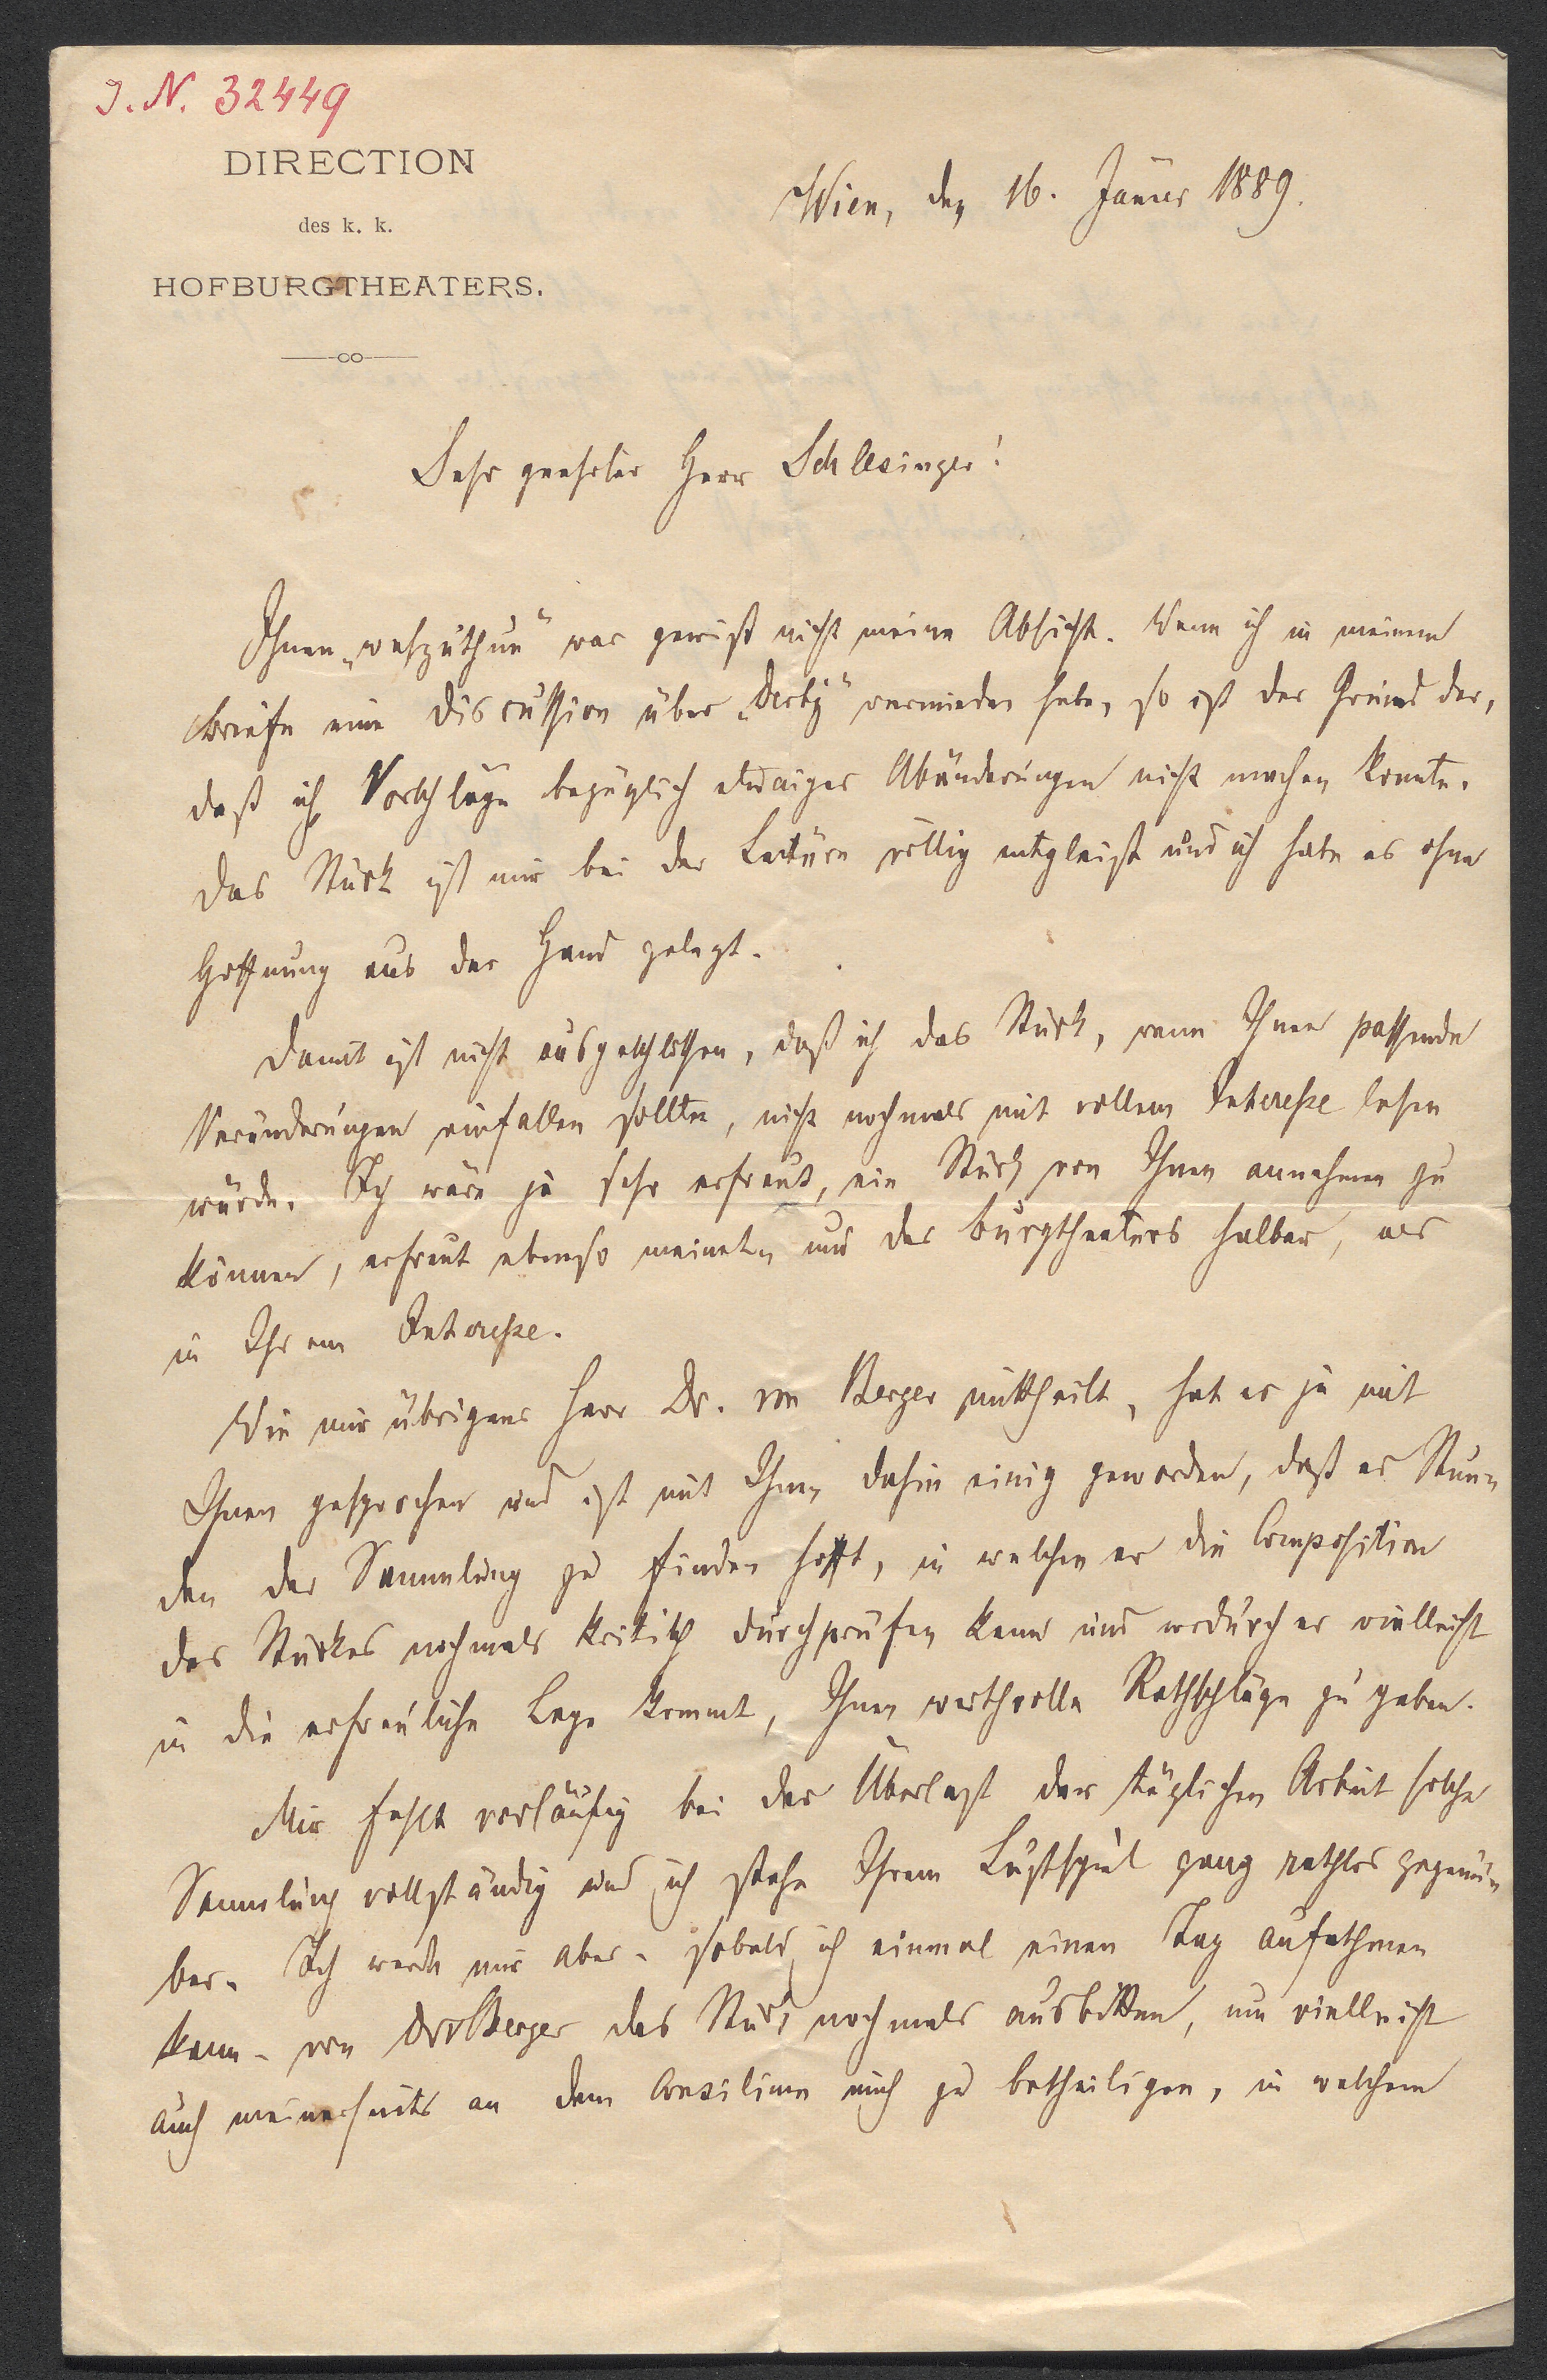 J. N. 32449
DIRECTION
des k. k.
HOFBURGTHEATERS.
Wien, den 16. Januar 1889.
Sehr geehrter Herr Schlesinger!
Ihnen „wehzuthun“ war gewiß nicht meine Absicht. Wenn ich in meinem
Briefe eine Discussion über „Derby“ vermieden habe, so ist der Grund der,
daß ich Vorschläge bezüglich etwaiger Abänderungen nicht machen konnte.
Das Stück ist mir bei der Lectüre völlig entgleist und ich habe es ohne
Hoffnung aus der Hand gelegt.
Damit ist nicht ausgeschlossen, daß ich das Stück, wenn Ihnen passende
Veränderungen einfallen sollten, nicht nochmals mit vollem Interesse lesen
würde. Ich wäre ja sehr erfreut, ein Stück von Ihnen annehmen zu
können, erfreut ebenso meinet- und des Burgtheaters halber, als
in Ihrem Interesse.
Wie mir übrigens Herr Dr. von Berger mittheilt, hat er ja mit
Ihnen gesprochen und ist mit Ihnen dahin einig geworden, daß er Stun-
den der Sammlung zu finden hofft, in welchen er die Composition
des Stückes nochmals kritisch durchprüfen kann und wodurch er vielleicht
in die erfreuliche Lage kommt, Ihnen werthvolle Rathschläge zu geben.
Mir fehlt vorläufig bei der Überlast der täglichen Arbeit solche
Sammlung vollständig und ich stehe Ihrem Lustspiel ganz rathlos gegenü-
ber. Ich werde mir aber - sobald ich einmal einen Tag aufathmen
kann - von Dr v Berger das Stück nochmals ausbitten, um vielleicht
auch meinerseits an dem Consilium mich zu betheiligen, in welchem